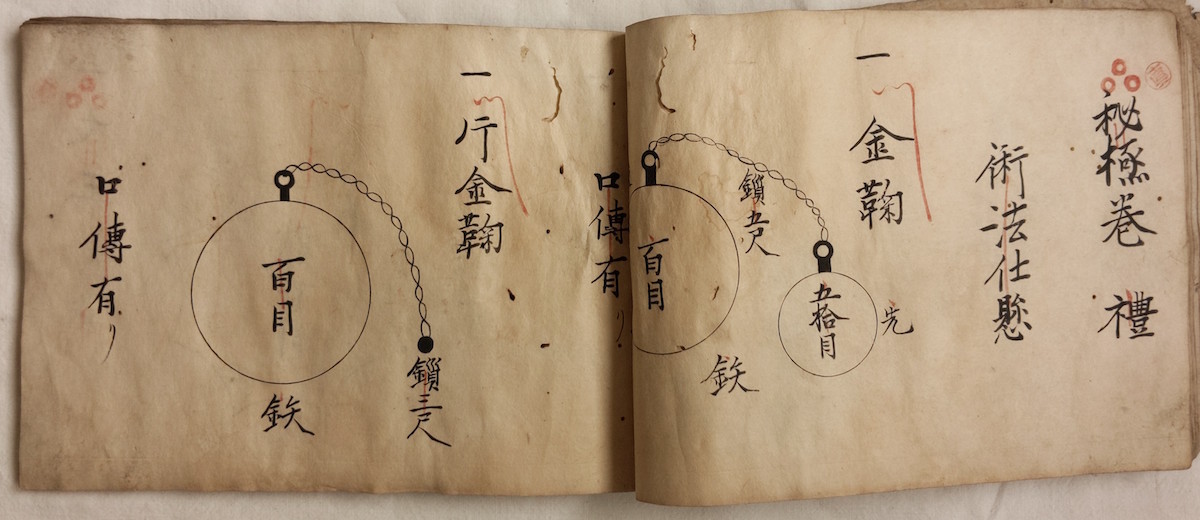 秘極巻 禮
術法仕懸
一 金鞠
先
五拾目
鎖五尺
鉃
百目
口傳有り
一 片金鞠
鎖三尺
百目
鉃
口傳有り